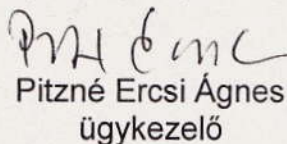 Pitzné Ercsi Ágnes
ügykezelő